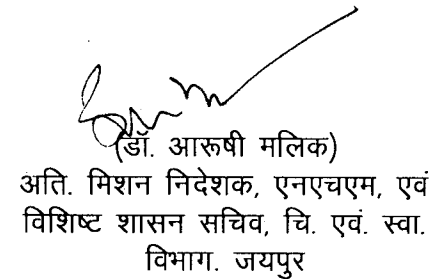 (डॉ. आरूषी मलिक)
अति. मिशन निदेशक, एनएचएम, एवं
विशिष्ट शासन सचिव, चि. एवं. स्वा.
विभाग. जयपुर